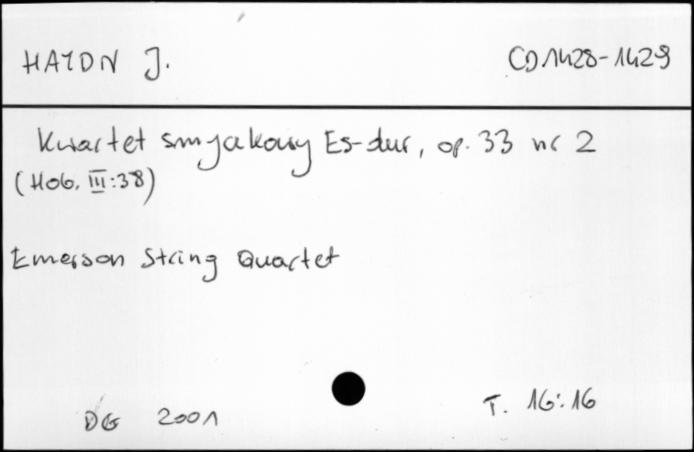 HAYDN J. CD1428-1429
Kwartet smyczkowy Es-dur, op. 33 nr 2
(Hob. III:38)
Emerson String Quartet
DG 2001 T. 16:16